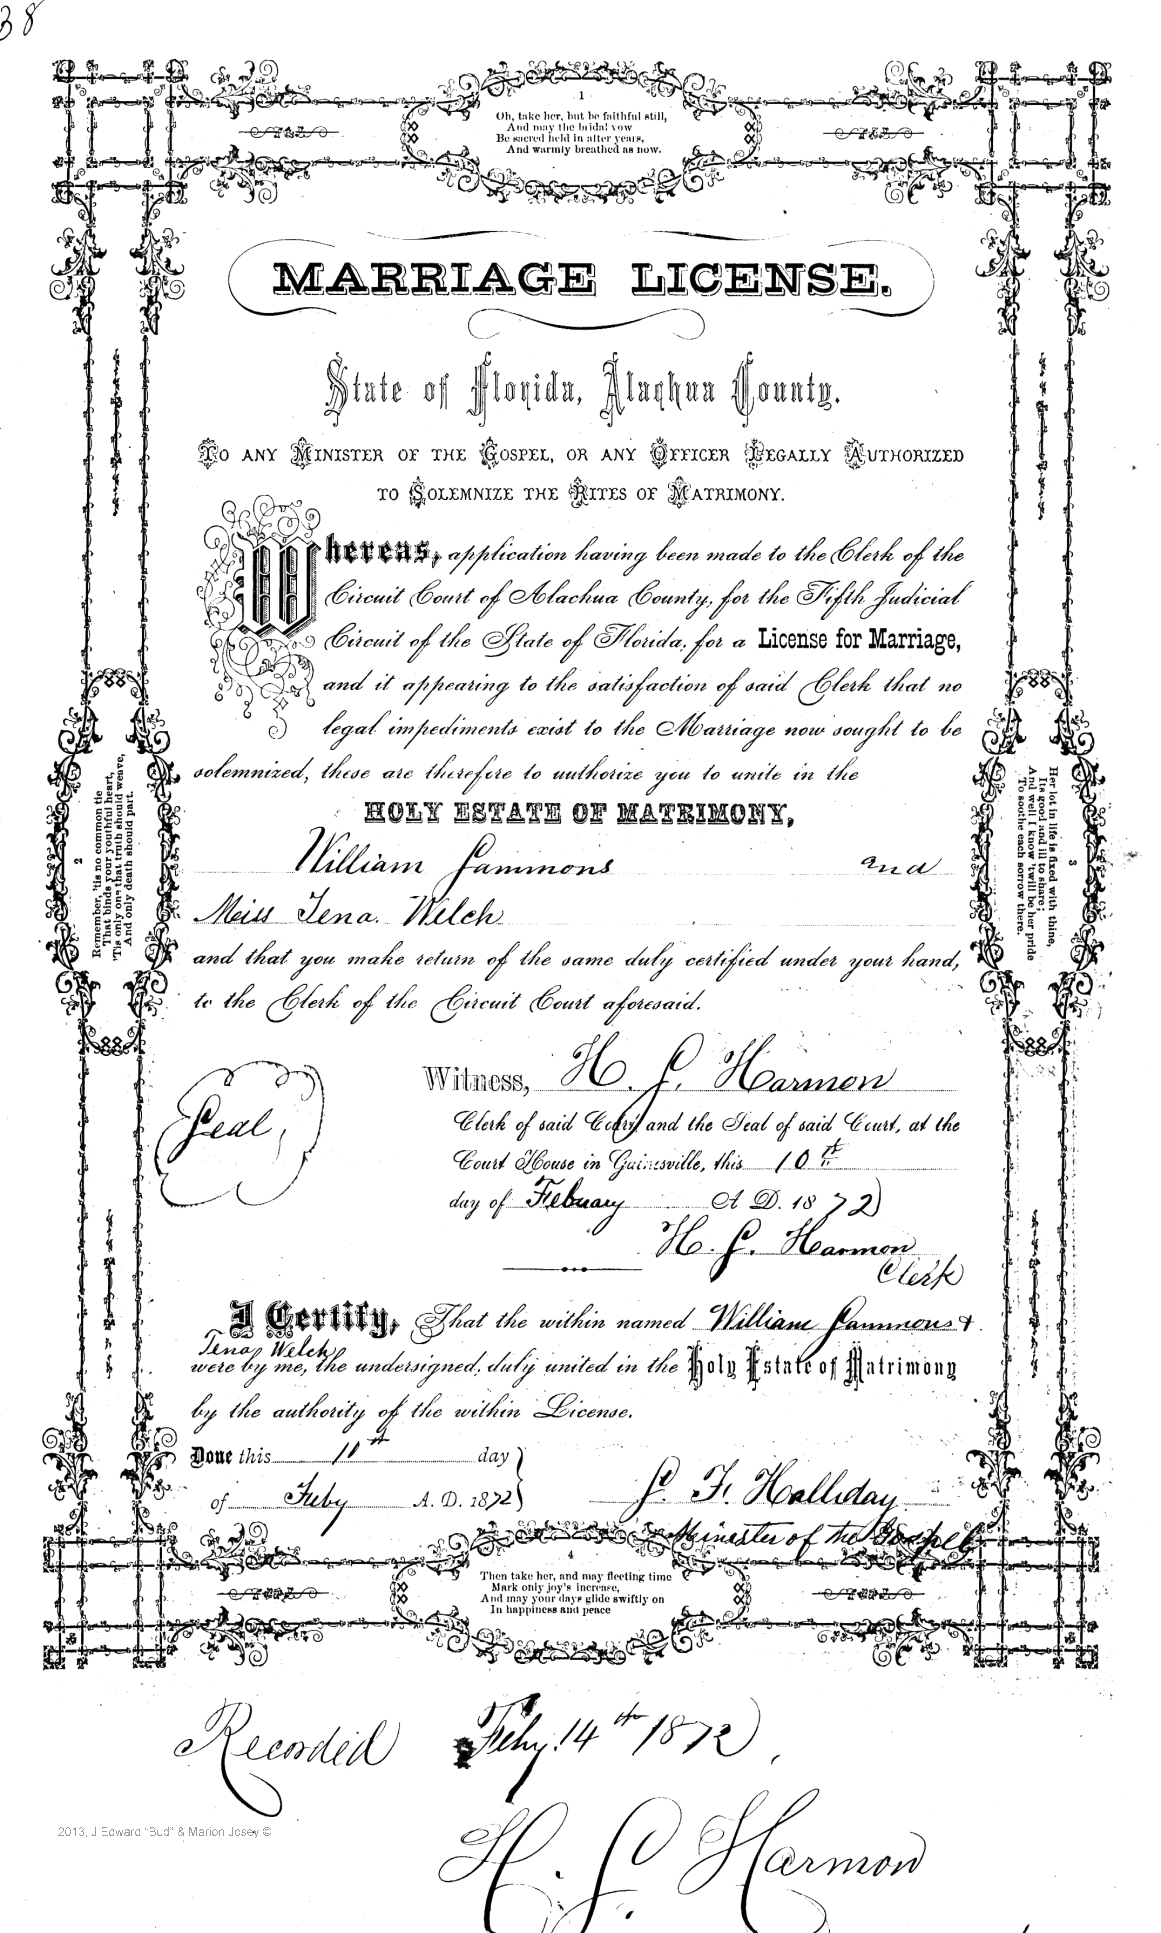 38
1
Oh, take her, but be faithful still,
And may the bridal vow
Be sacred held in after years,
And warmly breathed as now.
MARRIAGE LICENSE.
State of Florida, Alachua County.
To any Minister of the Gospel, or any Officer Legally Authorized
to Solemnize the Rites of Matrimony.
Whereas, application having been made to the Clerk of the
Circuit Court of Alachua County, for the Fifth Judicial
Circuit of the State of Florida, for a License for Marriage,
and it appearing to the satisfaction of said Clerk that no
legal impediments exist to the Marriage now sought to be
solemnized, these are therefore to authorize you to unite in the
HOLY ESTATE OF MATRIMONY,
William Sammons and
Miss Tena Welch
and that you make return of the same duly certified under your hand,
to the Clerk of the Circuit Court aforesaid.
2
Remember, 'tis no common tie
That binds your youthful heart,
'Tis only one that truth should weave,
And only death should part.
3
Her lot in life is fixed with thine,
Its good and ill to share;
And well I know 'twill be her pride
To soothe each sorrow there.
Seal,
Witness, H. S. Harmon
Clerk of said Court, and the Seal of said Court, at the
Court House in Gainesville, this 10th
day of February A. D. 1872
H. S. Harmon
Clerk
I Certify, That the within named William Sammons &
Tena Welch
were by me, the undersigned, duly united in the Holy Estate of Matrimony
by the authority of the within License.
Done this 10th day
of Feby A. D. 1872
S. F. Halliday
Minister of the Gospel
4
Then take her, and may fleeting time
Mark only joy's increase,
And may your days glide swiftly on
In happiness and peace
Recorded Feby. 14th 1872
2013, J Edward "Bud" & Marion Josey ©
H. S. Harmon